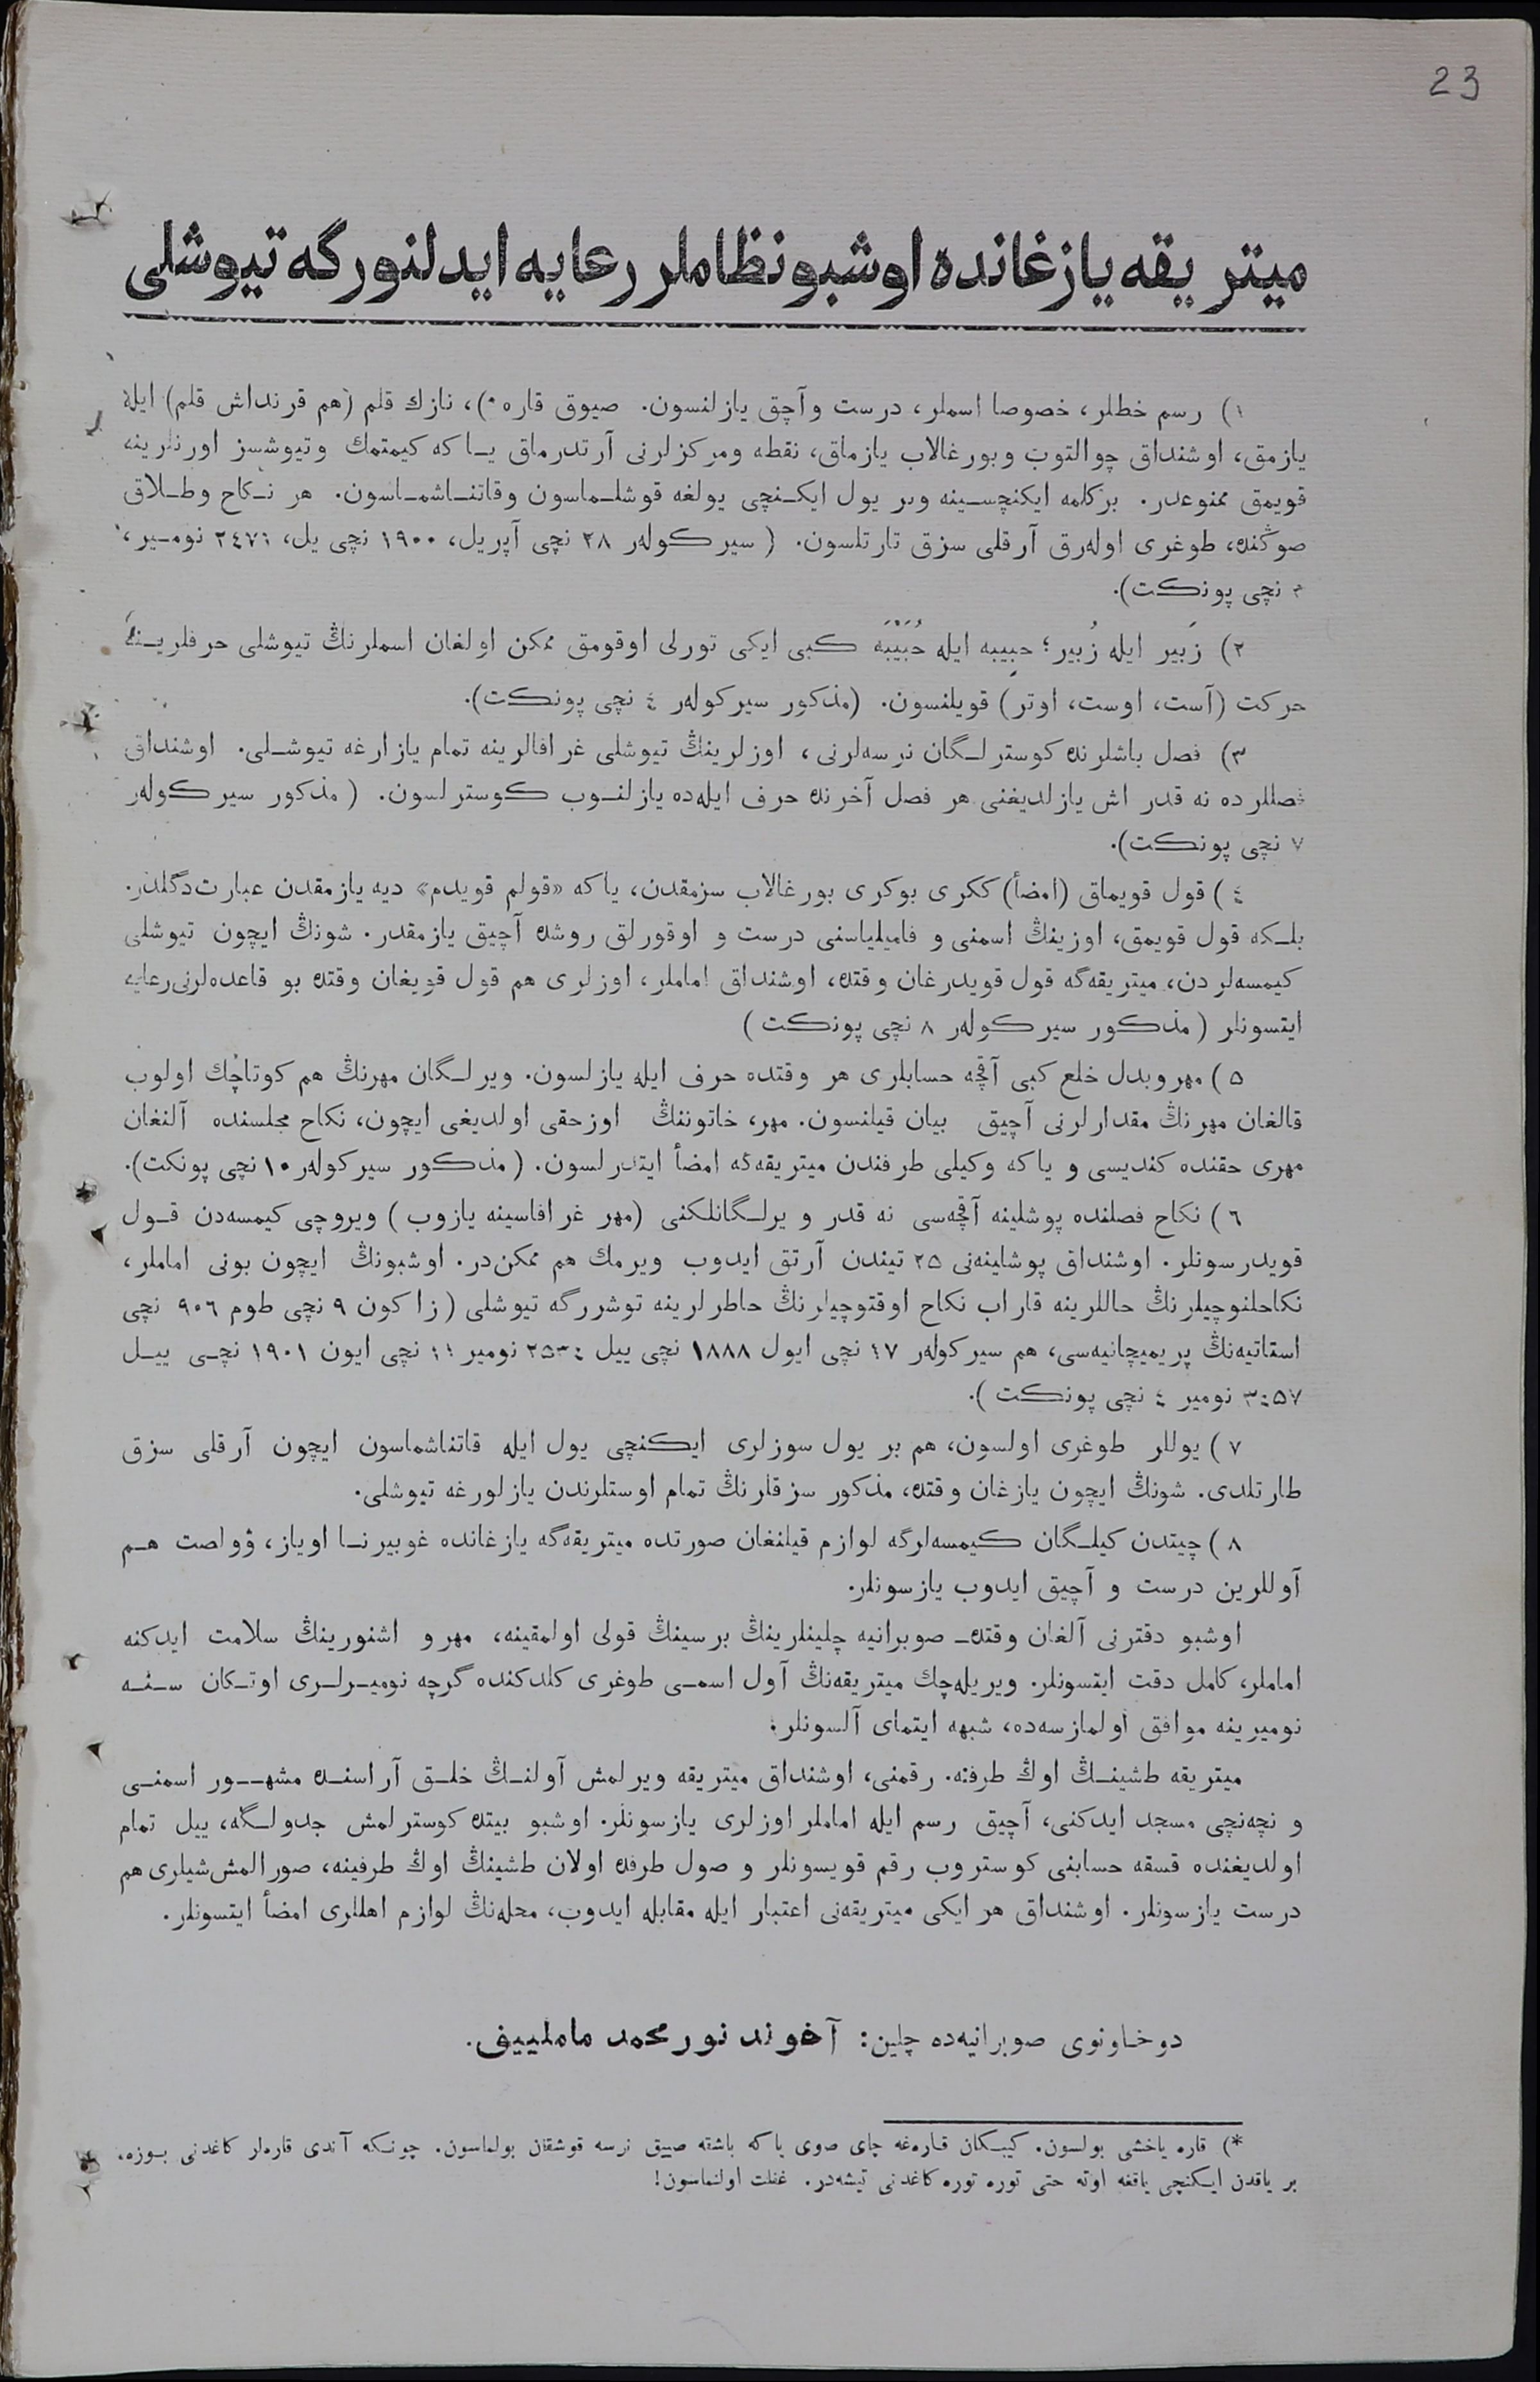 23
ميتريقه يازغانده اوشبو نظاملر رعايه ايدلنورگه تيوشلى
١) رسم خطلر، خصوصا اسملر، درست وآچق يازلنسون. صيوق قاره *)، نازك قلم (هم قرنداش قلم) ايله
يازمق، اوشنداق چوالتوب وبورغالاب يازماق، نقطه ومركزلرنى آرتدرماق يـا كه كيمتمك وتيوشسز اورنلرينه
قويمق ممنوعدر. بركلمه ايكنچسـينه وبر يول ايكـنچى يولغه قوشلـماسون وقاتنـاشمـاسون. هر نـكاح وطـلاق
صوڭنده، طوغرى اوله‌رق آرقلى سزق تارتلسون. (سيركوله‌ر ٢٨ نچى آپريل، ١٩٠٠ نچى يل، ٢٤٧١ نومـير،
نچى پونكت).
٢) زَبير ايله زُبير؛ حبِيبه ايله حُبَيْبَه كبى ايكى تورلى اوقومق ممكن اولغان اسملرنڭ تيوشلى حرفلريـنه
حركت (آست، اوست، اوتر) قويلنسون. (مذكور سيركوله‌ر ٤ نچى پونكت).
٣) فصل باشلرنده كوسترلـگان نرسه‌لرنى، اوزلرينڭ تيوشلى غرافالرينه تمام يازارغه تيوشـلى. اوشنداق
فصللرده نه قدر اش يازلديغنى هر فصل آخرنده حرف ايله‌ده يازلنـوب كوسترلسون. (مذكور سيركوله‌ر
٧ نچى پونكت).
٤) قول قويماق (امضأ) ككرى بوكرى بورغالاب سزمقدن، ياكه «قولم قويدم» ديه يازمقدن عبارت دگلدر.
بلـكه قول قويمق، اوزينڭ اسمنى و فاميلياسنى درست و اوقورلق روشده آچيق يازمقدر. شونڭ ايچون تيوشلى
كيمسه‌لردن، ميتريقه‌گه قول قويدرغان وقتده، اوشنداق اماملر، اوزلرى هم قول قويغان وقتده بو قاعده‌لرنى رعايه
ايتسونلر (مذكور سيركوله‌ر ٨ نچى پونكت)
٥) مهر وبدل خلع كبى آقچه حسابلرى هر وقتده حرف ايله يازلسون. ويرلـگان مهرنڭ هم كوتاچك اولوب
قالغان مهرنڭ مقدارلرنى آچيق بيان قيلنسون. مهر، خاتوننڭ اوزحقى اولديغى ايچون، نكاح مجلسنده آلنغان
مهرى حقنده كنديسى و ياكه وكيلى طرفندن ميتريقه‌گه امضأ ايتدرلسون. (مذكور سيركوله‌ر ١٠ نچى پونكت).
٦) نكاح فصلنده پوشلينه آقچه‌سى نه قدر ويرلـگانلكنى (مهر غرافاسينه يازوب) ويروچى كيمسه‌دن قـول
قويدرسونلر. اوشنداق پوشلينه‌نى ٢٥ تيندن آرتق ايدوب ويرمك هم ممكن‌در. اوشبونڭ ايچون بونى اماملر،
نكاحلنوچيلرنڭ حاللرينه قاراب نكاح اوقتوچيلرنڭ خاطرلرينه توشررگه تيوشلى (زاكون ٩ نچى طوم ٩٠٦ نچى
استاتيه‌نڭ پريميچانيه‌سى، هم سيركوله‌ر ١٧ نچى ايول ١٨٨٨ نچى ييل نومير ١١ نچى ايون ١٩٠١ نچـى ييـل
٣٤٥٧ نومير ٤ نچى پونكت).
٧) يوللر طوغرى اولسون، هم بر يول سوزلرى ايكنچى يول ايله قاتناشماسون ايچون آرقلى سزق
طارتلدى. شونڭ ايچون يازغان وقتده، مذكور سزقلرنڭ تمام اوستلرندن يازلورغه تيوشلى.
٨) چيتدن كيلـگان كيمسه‌لرگه لوازم قيلنغان صورتده ميتريقه‌گه يازغانده غوبيرنـا اوياز، ۋولصت هـم
آوللرين درست و آچيق ايدوب يازسونلر.
اوشبو دفترنى آلغان وقتده صوبرانيه چلينلرينڭ برسينڭ قولى اولمقينه، مهر و اشنورينڭ سلامت ايدكنه
اماملر، كامل دقت ايتسونلر. ويريله‌چك ميتريقه‌نڭ آول اسمـى طوغرى كلدكنده گرچه نوميـرلـرى اوتـكان سـنـه
نوميرينه موافق اولمازسه‌ده، شبهه ايتماى آلسونلر.
ميتريقه طشينـڭ اوڭ طرفنه. رقمنى، اوشنداق ميتريقه ويرلمش آولنـڭ خلـق آراسنـده مشهـور اسمنـى
و نچه‌نچى مسجد ايدكنى، آچيق رسم ايله اماملر اوزلرى يازسونلر. اوشبو بيتده كوسترلمش جدولـگه، ييل تمام
اولديغنده قسقه حسابنى كوستروب رقم قويسونلر و صول طرفده اولان طشينڭ اوڭ طرفينه، صورالمش شيلرى هم
درست يازسونلر. اوشنداق هر ايكى ميتريقه‌نى اعتبار ايله مقابله ايدوب، محله‌نڭ لوازم اهللرى امضأ ايتسونلر.
دوخاونوى صوبرانيه‌ده چلين: آخوند نورمحمد مامليیف.
*) قاره ياخشى بولسون. كيبـكان قاره‌غه چاى صوى ياكه باشقه صييق نرسه قوشقان بولماسون. چونـكه آندى قاره‌لر كاغدنى بـوزه،
بر ياقدن ايـكنچى ياقغه اوته حتى توره توره كاغدنى تيشه‌در. غفلت اولنماسون!